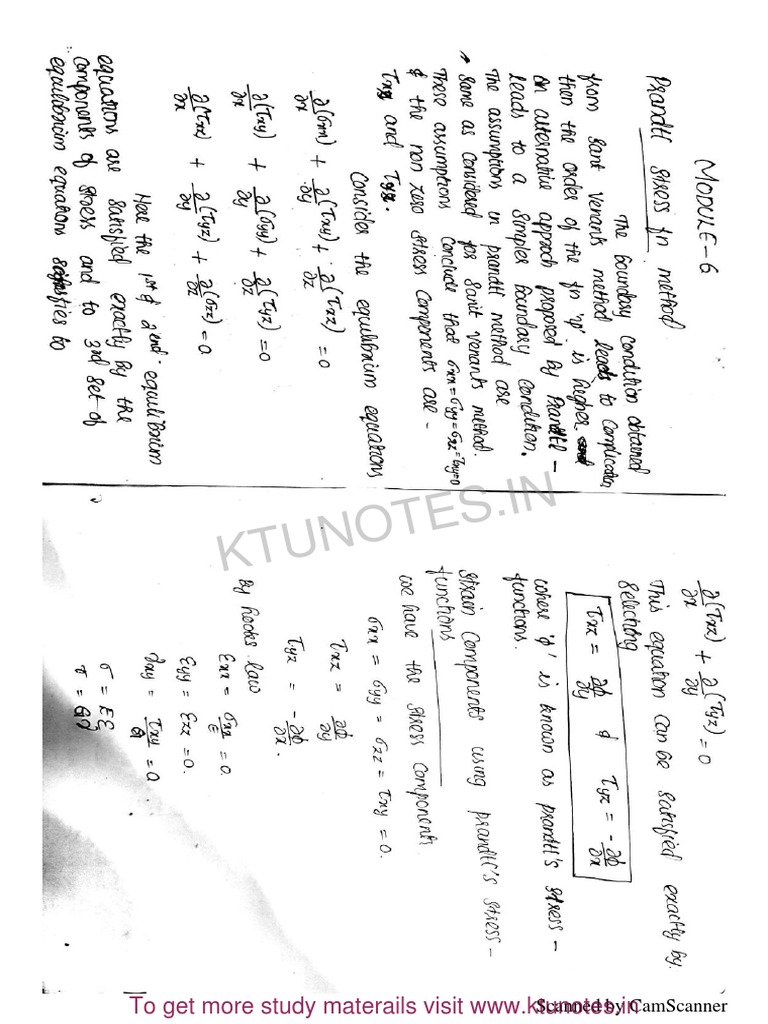 MODULE-6
Prandtl stress fn method
The boundary condition obtained
from Sant venants method leads to complication
then the order of the fn 'φ' is higher
An alternative approch proposed by Prandtl –
leads to a simpler boundary condition.
The assumptions in prandtl method are
same as considered for saint venants method.
These assumptions conclude that σxx = σyy = σzz = τxy = 0
& the non zero stress components are –
τxz and τyz.
Consider the equilibrium equations
∂/∂x (σxx) + ∂/∂y (τxy) + ∂/∂z (τxz) = 0
∂/∂x (τxy) + ∂/∂y (σyy) + ∂/∂z (τyz) = 0
∂/∂x (τxz) + ∂/∂y (τyz) + ∂/∂z (σz) = 0
Here the 1st & 2nd equilibrium
equations are satisfied exactly by the
components of stress and to 3rd set of
equilibrium equations satisfies to
∂/∂x (τxz) + ∂/∂y (τyz) = 0
This equation can be satisfied exactly by
selecting
τxz = ∂φ/∂y & τyz = -∂φ/∂x
where 'φ' is known as prandtl's stress –
functions.
Strain Components using prandtl's stress –
functions
we have the stress components.
σxx = σyy = σzz = τxy = 0.
τxz = ∂φ/∂y
τyz = -∂φ/∂x.
By hooks law
εxx = σxx/E = 0.
εyy = εzz = 0.
γxy = τxy/G = 0
σ = Eε
τ = Gγ
KTUNOTES.IN
To get more study materails visit www.ktunotes.in
Scanned by CamScanner